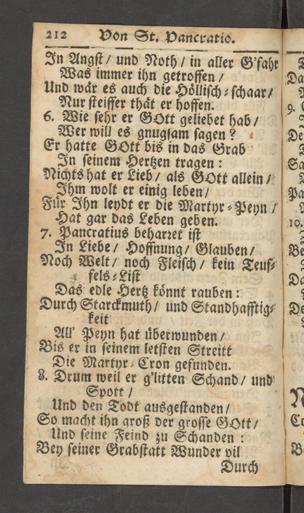 212 Von St. Pancratio.
In Angst / und Noth / in aller G'fahr
Was immer ihn getroffen /
Und wär es auch die Höllisch-schaar /
Nur steiffer thät er hoffen.
6. Wie sehr er GOtt geliebet hab /
Wer will es gnugsam sagen?
Er hatte GOtt bis in das Grab
In seinem Hertzen tragen:
Nichts hat er Lieb / als GOtt allein /
Ihm wolt er einig leben /
Für Ihn leydt er die Martyr-Peyn /
Hat gar das Leben geben.
7. Pancratius beharzet ist
In Liebe / Hoffnung / Glauben /
Noch Welt / noch Fleisch / kein Teuf-
fels-List
Das edle Hertz könnt rauben:
Durch Starckmuth / und Standhafftig-
keit
All' Peyn hat überwunden /
Bis er in seinem letsten Streitt
Die Martyr-Cron gefunden.
8. Drum weil er g'litten Schand / und
Spott /
Und den Todt ausgestanden /
So macht ihn groß der grosse GOtt /
Und seine Feind zu Schanden:
Bey seiner Grabstatt Wunder vil
Durch